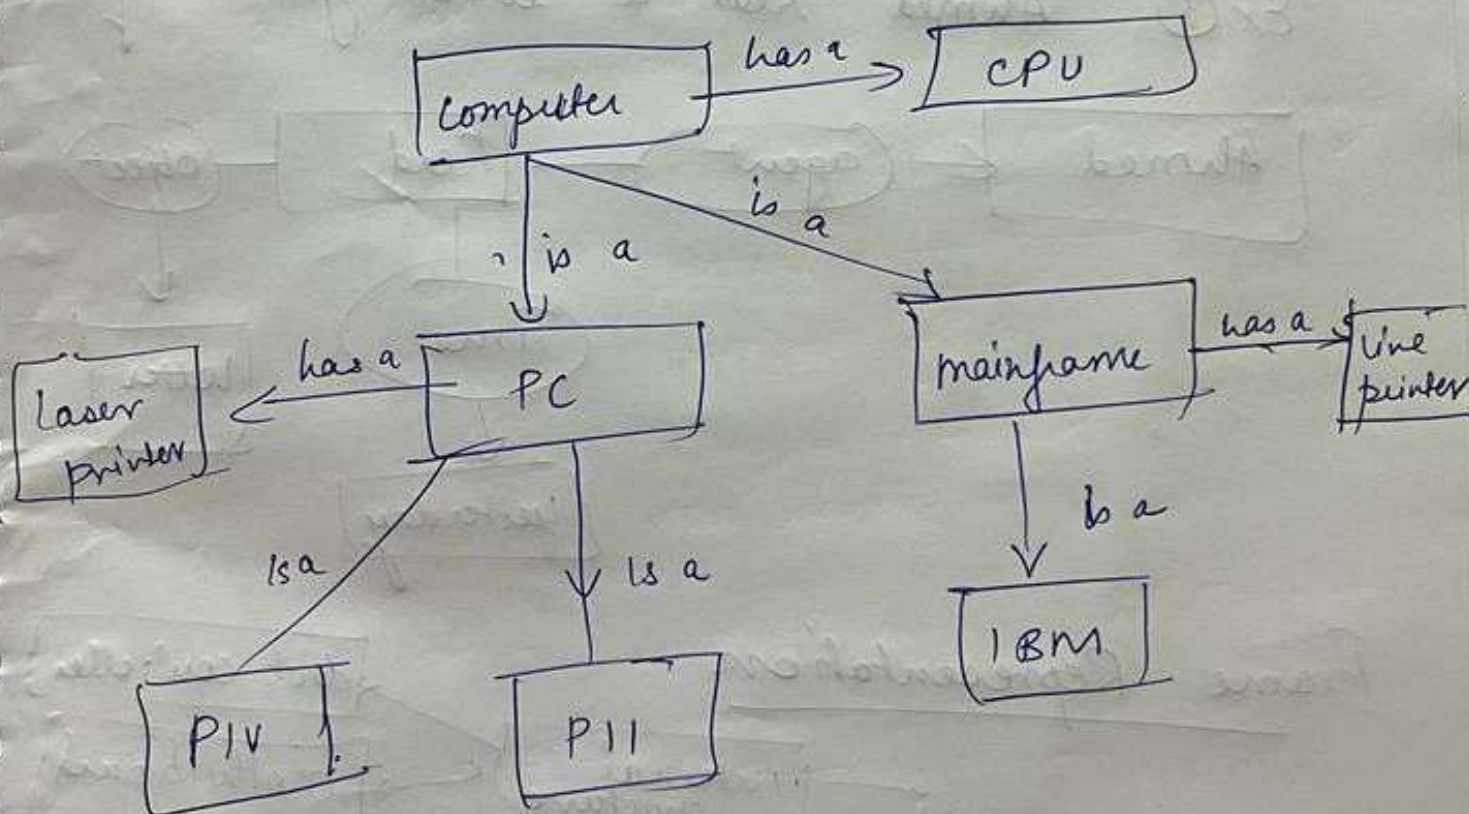 computer
has a
CPU
is a
is a
Laser
printer
has a
PC
mainframe
has a
line
printer
Is a
Is a
Is a
PIV
PII
IBM